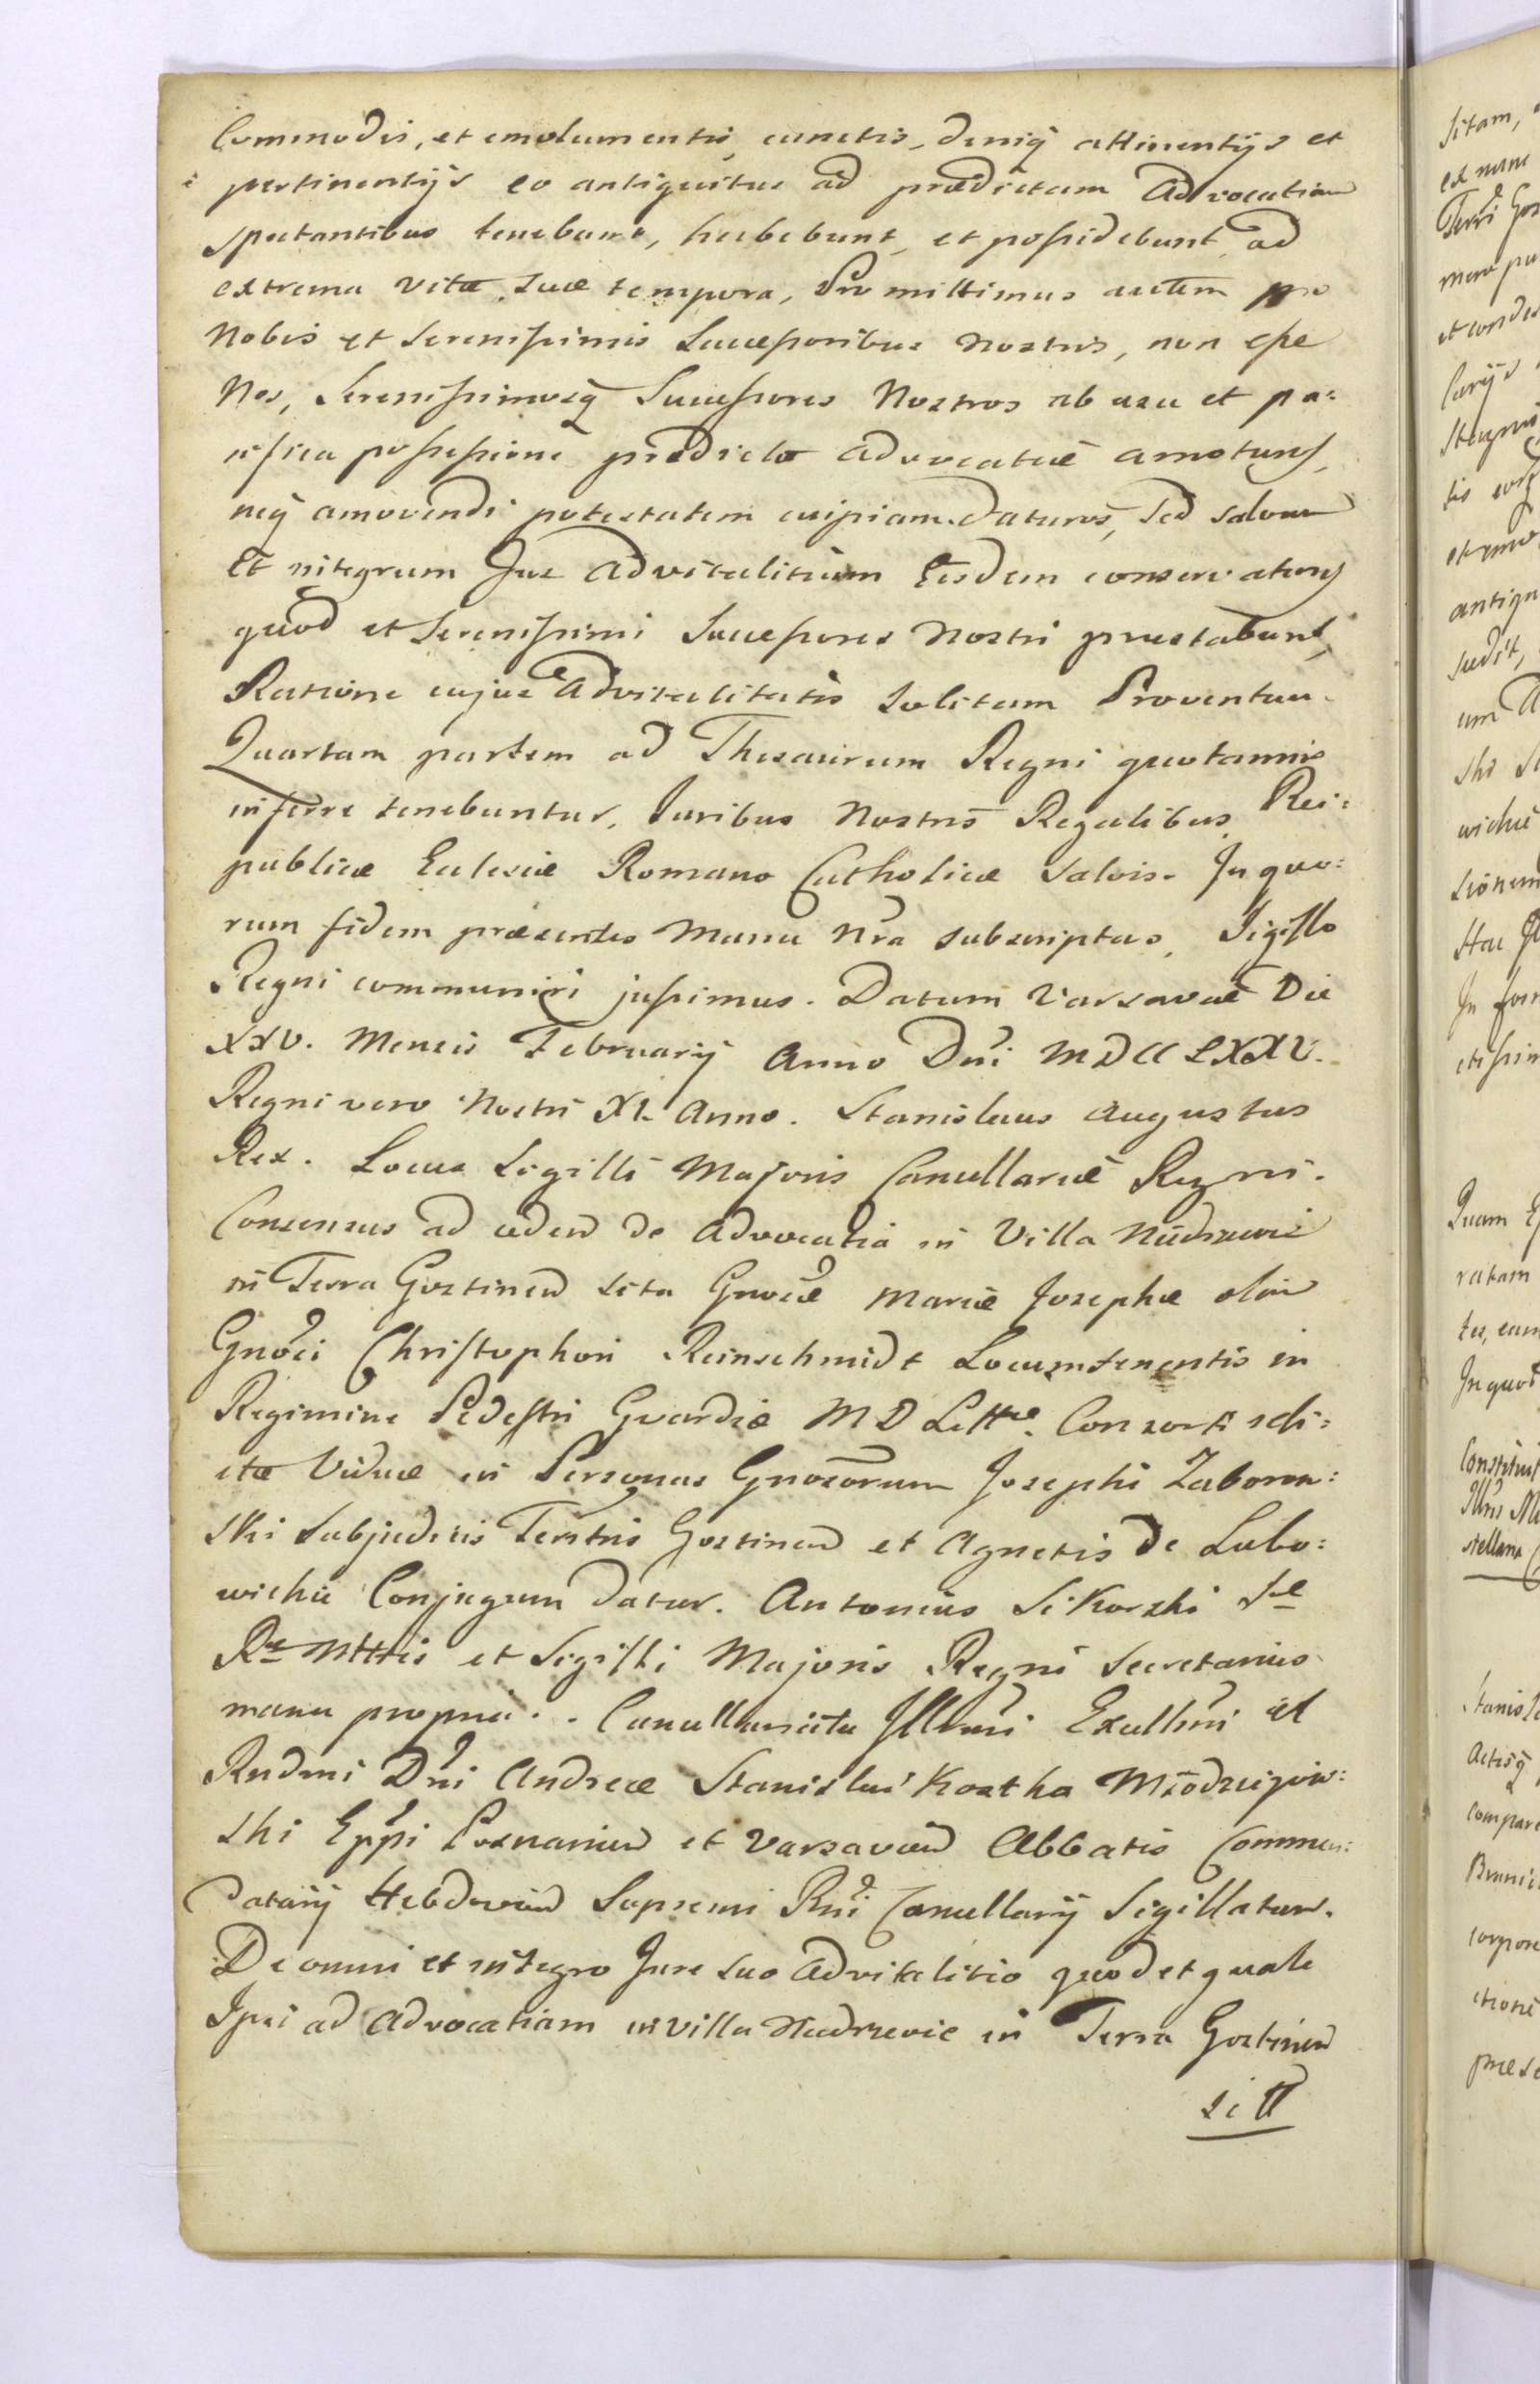 Commodis, et emolumentis, cunctis, deniq attinentijs et
pertinentijs ex antiquitus ad prædictam Advocatiam
spectantibus tenebunt, habebunt, et poſsidebunt, ad
extrema vitæ suæ tempora, Promittimus autem pro
Nobis et Sereniſsimis Succeſsoribus Nostris, non eſse
Nos, Sereniſsimosq Succeſsores Nostros ab usu et pa:
cifica poſseſsione prædictæ Advocatiæ amoturos,
neq amovendi potestatem cuipiam daturos, Sed salvum
et integrum Jus Advitalitium Eisdem conservaturos
quod et Sereniſsimi Succeſsores Nostri præstabunt,
Ratione cujus Advitalitatis Solitam Proventuu
Quartam partem ad Thesaurum Regni quotannis
inferre tenebuntur, Juribus Nostris Regalibus, Rei:
publicæ Eclesiæ Romano Catholicæ Salvis. In quo:
rum fidem præsentes Manu Nra subscriptas, Sigillo
Regni communiri juſsimus. Datum Varsaviæ Die
XXV. Mensis Februarij Anno Dni MDCCLXXV.
Regni vero Nostri XI. Anno. Stanislaus Augustus
Rex. Locus Sigilli Majoris Cancellariæ Regni.
Consensus ad ceden de Advocatia in Villa
in Terra Gostinen sita Gnosæ Mariæ Josephæ olim
Gnosi Christophori Reinschmidt Locumtenentis in
Regimine Pedestri Gvardiæ M D Littvæ. Consorti reli:
ctæ Viduæ in Personas Gnosorum Josephi Zaborow:
ski Subjudicis Terstris Gostinen et Agnetis de Lubo:
wichie Conjugum datur. Antonius Sikorski Sæ
Ræ Mttis et Sigilli Majoris Regni Secretarius
manu propria. Cancellariatu Illmi Excellmi et
Rndmi Dni Andreæ Stanislai Kostka Młodziejow:
ski Eppi Posnanien et Varsavien Abbatis Commen:
datarij Hebdovien Supremi Rni Cancellarij Sigillatum.
De omni et integro Jure suo Advitalitio quod et quale
Ipsi ad Advocatiam in Villa in Terra Gostinen
sitt